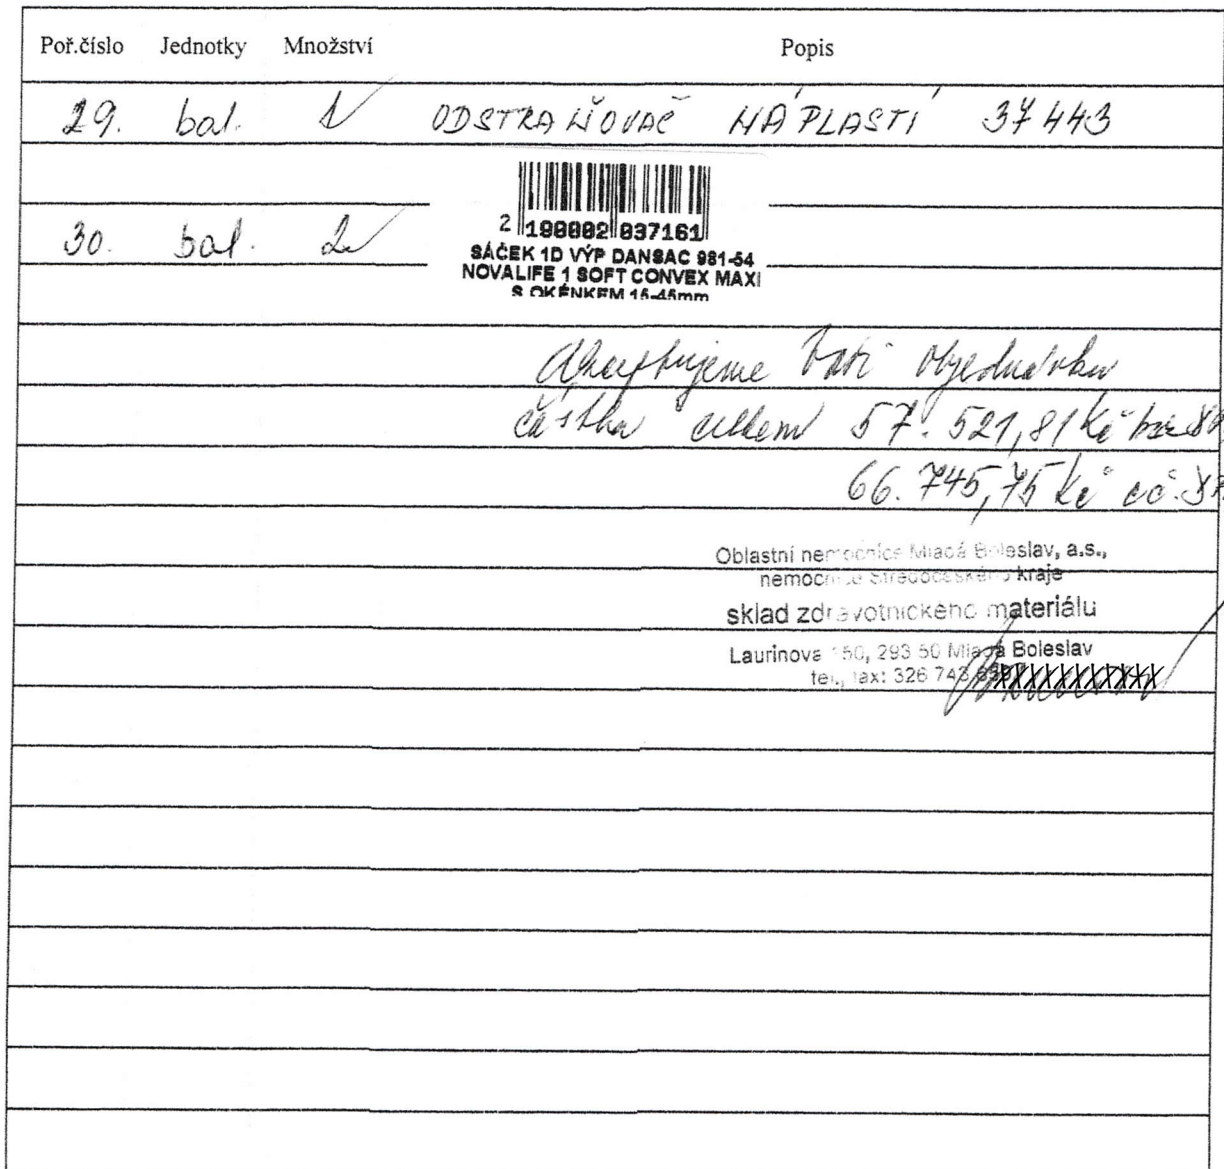 Poř.číslo Jednotky Množství Popis
29. bal. 1 ODSTRAŇOVAČ NÁPLASTÍ 37443
2 198882 837161
30. bal. 2
SÁČEK 1D VÝP DANSAC 981-54
NOVALIFE 1 SOFT CONVEX MAXI
S OKÉNKEM 15-45mm
Akceptujeme Vaši objednávku
částka celkem 57.521,81 Kč bez
66.745,75 Kč vč.
Oblastní nemocnice Mladá Boleslav, a.s.,
nemocnice Středočeského kraje
sklad zdravotnického materiálu
Laurinova 50, 293 50 Mladá Boleslav
tel., fax: 326 743